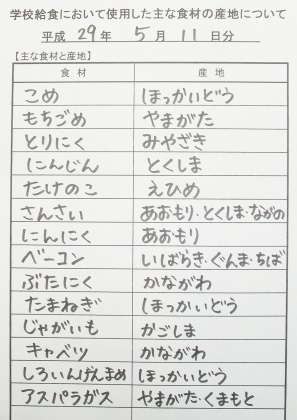 学校給食において使用した主な食材の産地について
平成 29年 5月 11日分
【主な食材と産地】
食材 産地
こめ ほっかいどう
もちごめ やまがた
とりにく みやざき
にんじん とくしま
たけのこ えひめ
さんさい あおもり・とくしま・ながの
にんにく あおもり
ベーコン いばらき・ぐんま・ちば
ぶたにく かながわ
たまねぎ ほっかいどう
じゃがいも かごしま
キャベツ かながわ
しろいんげんまめ ほっかいどう
アスパラガス やまがた・くまもと